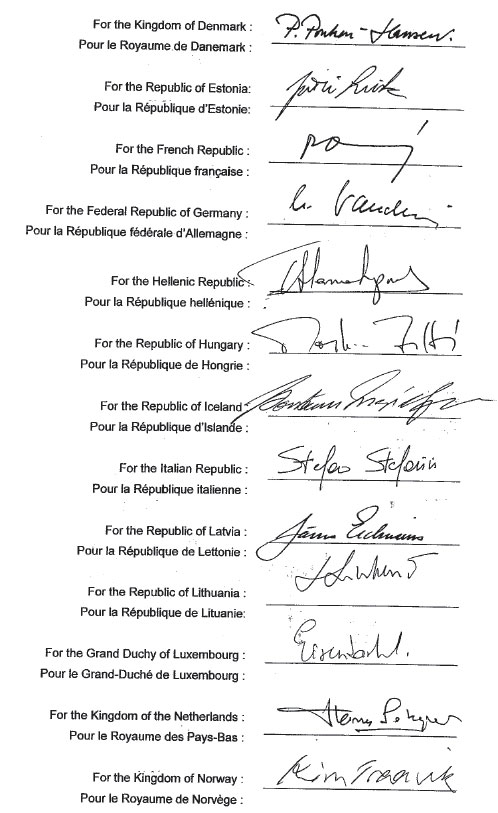 For the Kingdom of Denmark :
Pour le Royaume de Danemark :
For the Republic of Estonia:
Pour la République d'Estonie:
For the French Republic :
Pour la République française :
For the Federal Republic of Germany :
Pour la République fédérale d'Allemagne :
For the Hellenic Republic :
Pour la République hellénique :
For the Republic of Hungary :
Pour la République de Hongrie :
For the Republic of Iceland :
Pour la République d'Islande :
For the Italian Republic : Stefano Stefanini
Pour la République italienne :
For the Republic of Latvia : Jānis Eichmanis
Pour la République de Lettonie :
For the Republic of Lithuania :
Pour la République de Lituanie:
For the Grand Duchy of Luxembourg :
Pour le Grand-Duché de Luxembourg :
For the Kingdom of the Netherlands :
Pour le Royaume des Pays-Bas :
For the Kingdom of Norway : Kim Traavik
Pour le Royaume de Norvège :